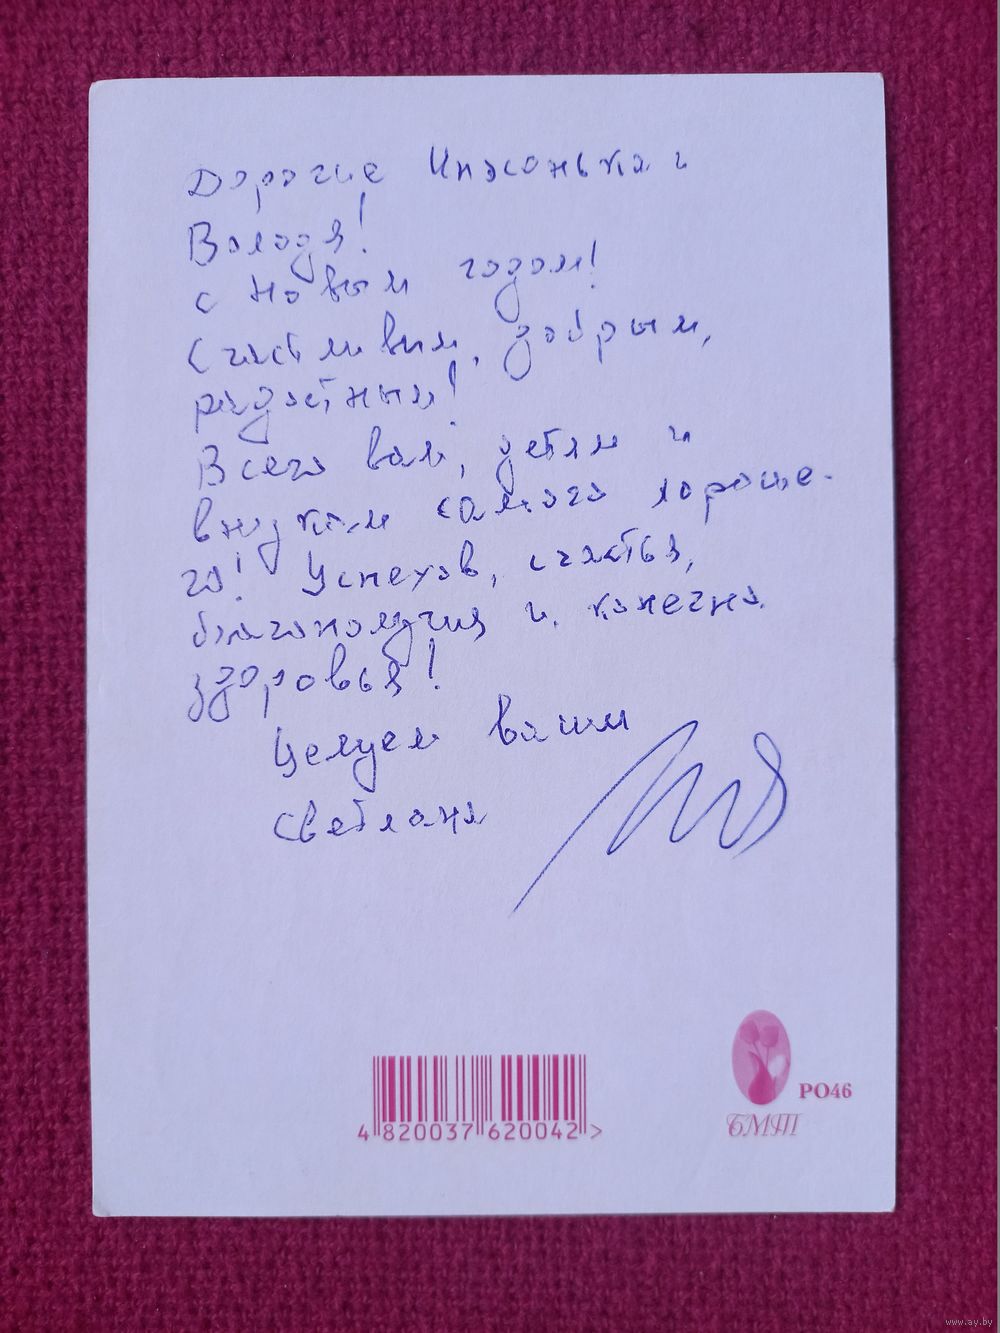 Дорогие Инэсонька и
Володя!
С Новым годом!
Счастливым, добрым,
радостным!
Всего вам, детям и
внукам самого хороше-
го! Успехов, счастья,
благополучия и, конечно
здоровья!
Целуем ваши
Светлана
4 820037 620042 >
PO46
БМТ
www.ay.by